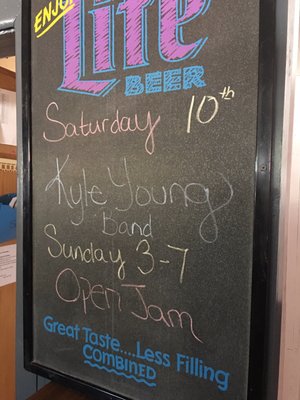 ENJOY
Lite
BEER
Saturday 10th
Kyle Young
Band
Sunday 3-7
Open Jam
Great Taste....Less Filling
COMBINED